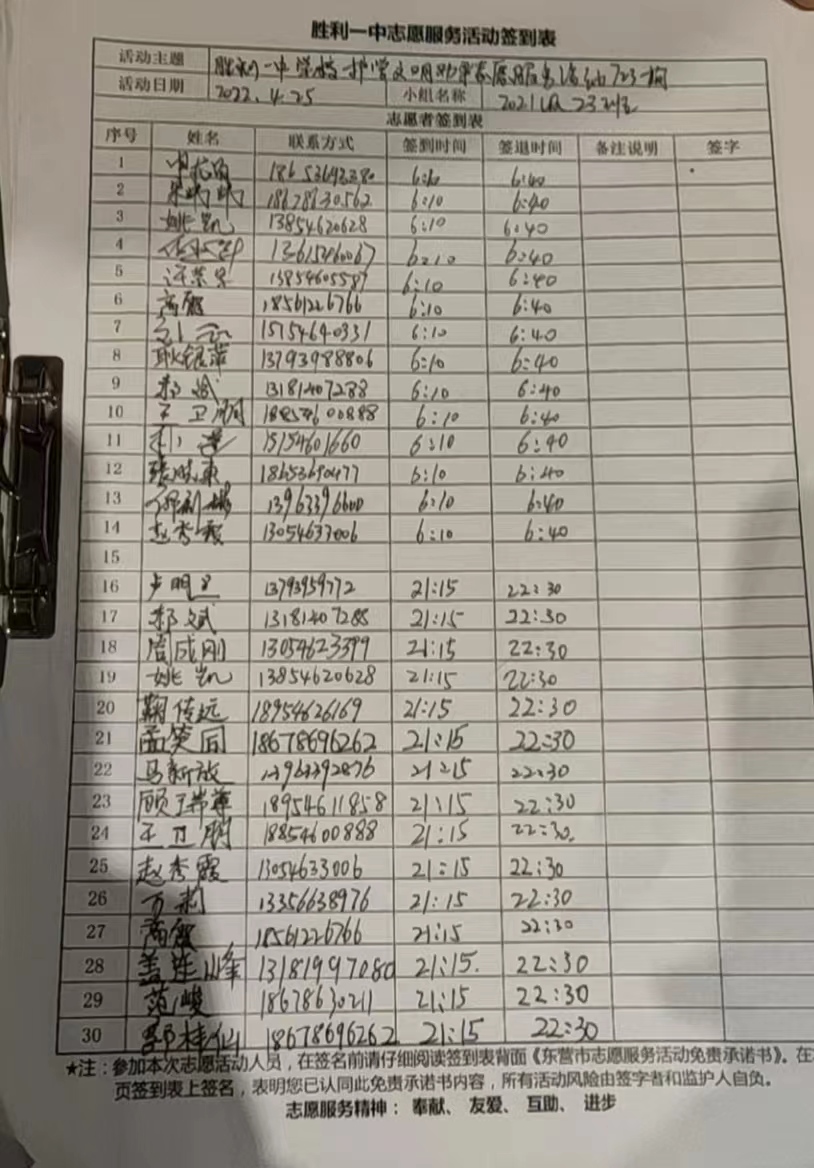 胜利一中志愿服务活动签到表
活动主题 胜利一中学校护学文明
活动日期 2022.4.25 小组名称 2021级23班
志愿者签到表
序号 姓名 联系方式 签到时间 签退时间 备注说明 签字
1 6:10 6:40
2 18678630562 6:10 6:40
3 姚凯 13854620628 6:10 6:40
4 13615460067 6:10 6:40
5 13854605587 6:10 6:40
6 高霞 18561226766 6:10 6:40
7 15154640331 6:10 6:40
8 耿银萍 13793988806 6:10 6:40
9 郝斌 13181407288 6:10 6:40
10 王卫朋 18854600888 6:10 6:40
11 15154601660 6:10 6:40
12 张晓东 18653690477 6:10 6:40
13 13963396600 6:10 6:40
14 赵秀霞 13054633006 6:10 6:40
15
16 卢明 13793959772 21:15 22:30
17 郝斌 13181407288 21:15 22:30
18 周成刚 13054623399 21:15 22:30
19 姚凯 13854620628 21:15 22:30
20 鞠传远 18954626169 21:15 22:30
21 孟笑同 18678696262 21:15 22:30
22 马新放 13963392876 21:15 22:30
23 顾瑞萍 18954611858 21:15 22:30
24 王卫朋 18854600888 21:15 22:30
25 赵秀霞 13054633006 21:15 22:30
26 万莉 13356638976 21:15 22:30
27 高霞 18561226766 21:15 22:30
28 盖连峰 13181997080 21:15 22:30
29 范峻 18678630211 21:15 22:30
30 郭桂仙 18678696262 21:15 22:30
★注：参加本次志愿活动人员，在签名前请仔细阅读签到表背面《东营市志愿服务活动免责承诺书》。在
页签到表上签名，表明您已认同此免责承诺书内容，所有活动风险由签字者和监护人自负。
志愿服务精神： 奉献、 友爱、 互助、 进步